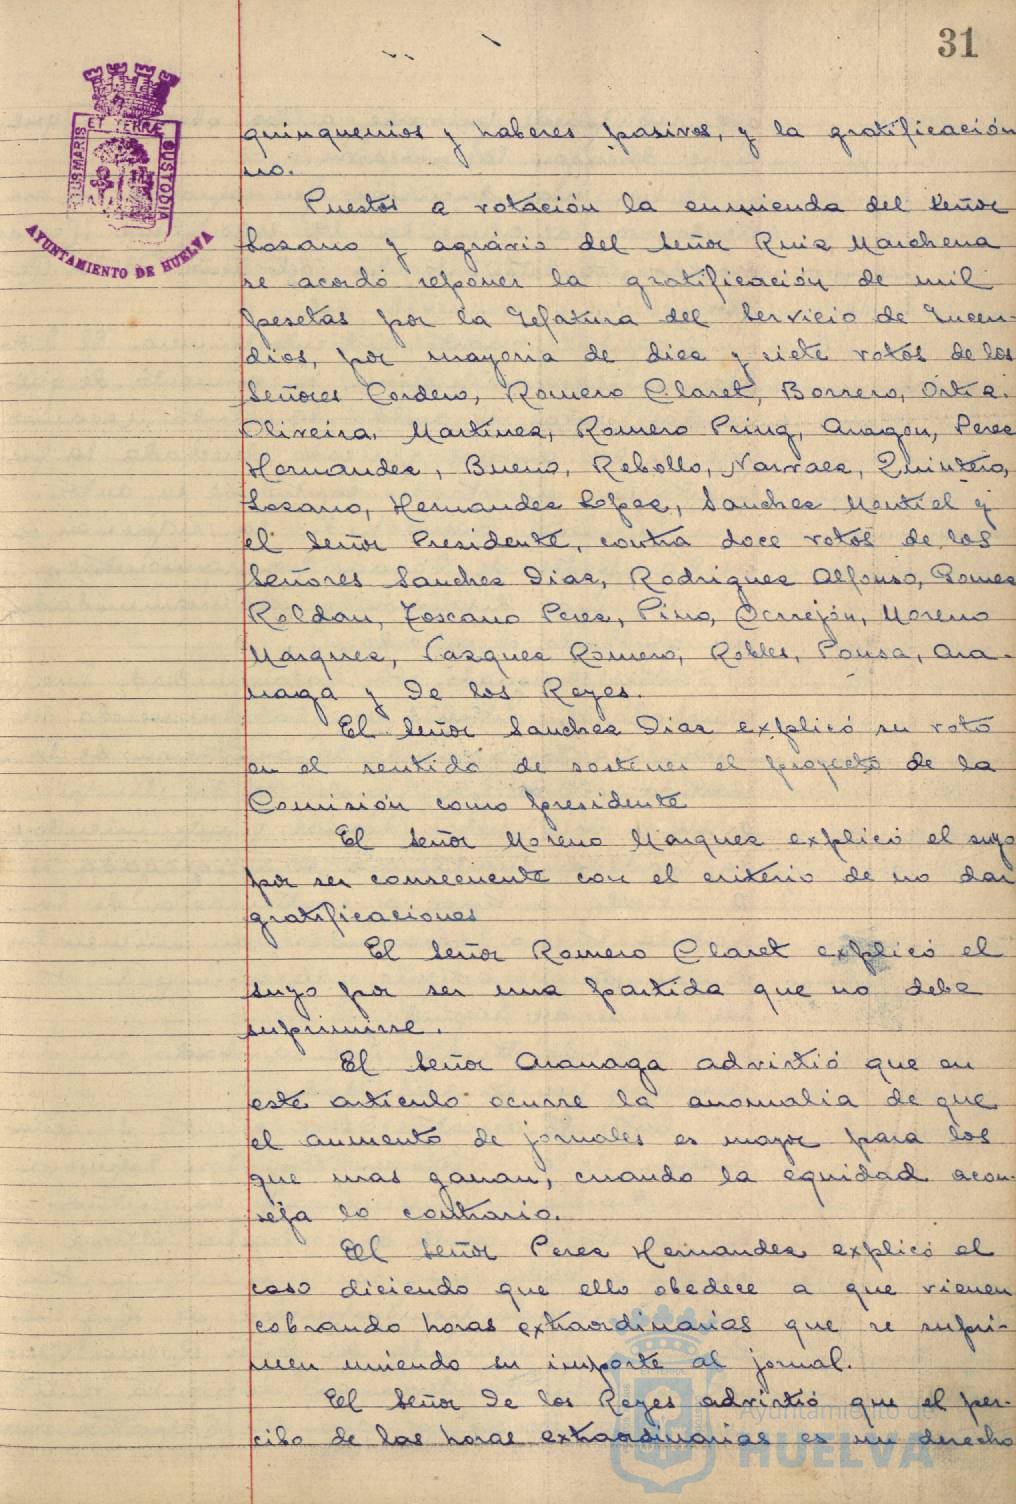 31
PORTUS MARIS
ET TERRÆ
CUSTODIA
AYUNTAMIENTO DE HUELVA
quinquenios y haberes pasivos, y la gratificación
no.
Puestos a votación la enmienda del Señor
Lozano y agrário del Señor Ruiz Marchena
se acordó reponer la gratificación de mil
pesetas por la Jefatura del Servicio de Incen-
dios, por mayoria de diez y siete votos de los
Señores Cordero, Romero Claret, Borrero, Ortiz,
Oliveira, Martinez, Romero Pring, Aragon, Perez
Hernandez, Bueno, Rebollo, Narvaez, Quintero,
Lozano, Hernandez Lopez, Sanchez Montiel y
el Señor Presidente, contra doce votos de los
Señores Sanchez Diaz, Rodriguez Alfonso, Gomez
Roldan, Toscano Perez, Pino, Ocrrejón, Moreno
Marquez, Vazquez Romero, Robles, Pousa, Ara-
naga y De los Reyes.
El Señor Sanchez Diaz explicó su voto
en el sentido de sostener el proyecto de la
Comisión como presidente
El Señor Moreno Marquez explicó el suyo
por ser consecuente con el criterio de no dar
gratificaciones
El Señor Romero Claret explicó el
suyo por ser una partida que no debe
suprimirse.
El Señor Aranaga advirtió que en
este artículo ocurre la anomalia de que
el aumento de jornales es mayor para los
que mas ganan, cuando la equidad acon-
seja lo contrario.
El Señor Perez Hernandez explicó el
caso diciendo que ello obedece a que vienen
cobrando horas extraordinarias que se supri-
men uniendo su importe al jornal.
El Señor De los Reyes advirtió que el per-
cibo de las horas extraordinarias es un derecho
Ayuntamiento de
HUELVA